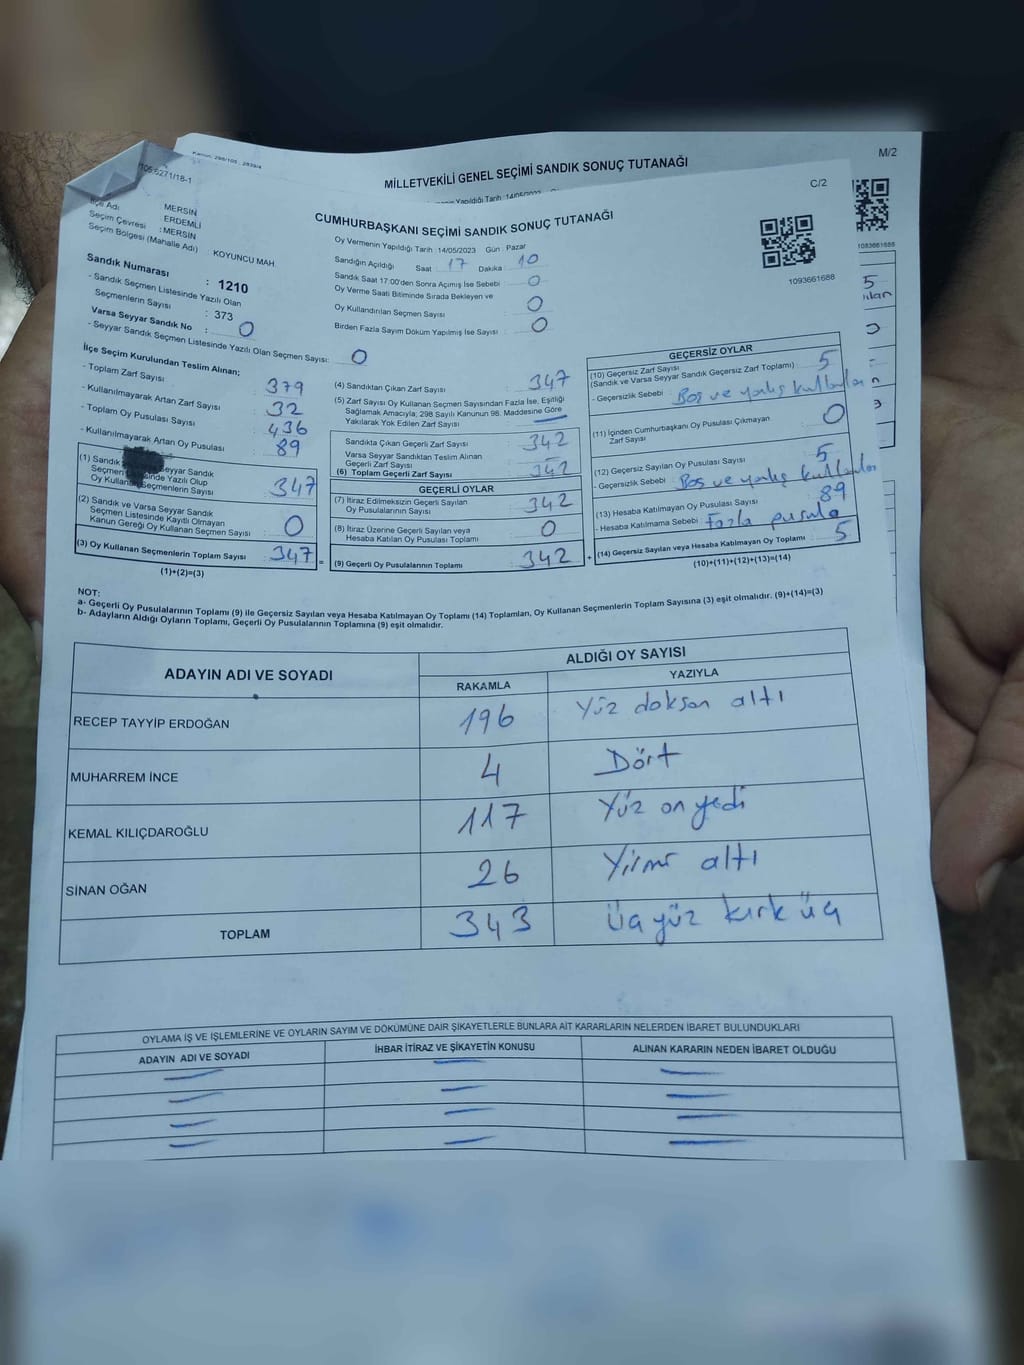 Kanun: 298/105 , 2839/4
MİLLETVEKİLİ GENEL SEÇİMİ SANDIK SONUÇ TUTANAĞI
M/2
6271/18-1
C/2
CUMHURBAŞKANI SEÇİMİ SANDIK SONUÇ TUTANAĞI
İlçe Adı
MERSİN
ERDEMLİ
Seçim Çevresi : MERSİN
Seçim Bölgesi (Mahalle Adı) : KOYUNCU MAH.
Oy Vermenin Yapıldığı Tarih : 14/05/2023 Gün : Pazar
Sandığın Açıldığı Saat : 17 Dakika : 10
Sandık Saat 17:00'den Sonra Açılmış İse Sebebi : 0
Oy Verme Saati Bitiminde Sırada Bekleyen ve
Oy Kullandırılan Seçmen Sayısı : 0
Birden Fazla Sayım Döküm Yapılmış İse Sayısı : 0
1093661688
1093661686
Sandık Numarası : 1210
- Sandık Seçmen Listesinde Yazılı Olan
Seçmenlerin Sayısı : 373
Varsa Seyyar Sandık No : 0
- Seyyar Sandık Seçmen Listesinde Yazılı Olan Seçmen Sayısı: 0
İlçe Seçim Kurulundan Teslim Alınan;
- Toplam Zarf Sayısı : 379
- Kullanılmayarak Artan Zarf Sayısı : 32
- Toplam Oy Pusulası Sayısı : 436
- Kullanılmayarak Artan Oy Pusulası : 89
(1) Sandık Seyyar Sandık
Seçmen inde Yazılı Olup
Oy Kullanan Seçmenlerin Sayısı : 347
(2) Sandık ve Varsa Seyyar Sandık
Seçmen Listesinde Kayıtlı Olmayan
Kanun Gereği Oy Kullanan Seçmen Sayısı : 0
(3) Oy Kullanan Seçmenlerin Toplam Sayısı : 347 =
(1)+(2)=(3)
(4) Sandıktan Çıkan Zarf Sayısı : 347
(5) Zarf Sayısı Oy Kullanan Seçmen Sayısından Fazla İse, Eşitliği
Sağlamak Amacıyla; 298 Sayılı Kanunun 98. Maddesine Göre
Yakılarak Yok Edilen Zarf Sayısı : —
Sandıkta Çıkan Geçerli Zarf Sayısı : 342
Varsa Seyyar Sandıktan Teslim Alınan
Geçerli Zarf Sayısı : —
(6) Toplam Geçerli Zarf Sayısı : 342
GEÇERLİ OYLAR
(7) İtiraz Edilmeksizin Geçerli Sayılan
Oy Pusulalarının Sayısı : 342
(8) İtiraz Üzerine Geçerli Sayılan veya
Hesaba Katılan Oy Pusulası Toplamı : 0
(9) Geçerli Oy Pusulalarının Toplamı : 342 +
GEÇERSİZ OYLAR
(10) Geçersiz Zarf Sayısı : 5
(Sandık ve Varsa Seyyar Sandık Geçersiz Zarf Toplamı)
- Geçersizlik Sebebi : Boş ve yanlış kullanılan
(11) İçinden Cumhurbaşkanı Oy Pusulası Çıkmayan
Zarf Sayısı : 0
(12) Geçersiz Sayılan Oy Pusulası Sayısı : 5
- Geçersizlik Sebebi : Boş ve yanlış kullanılan
(13) Hesaba Katılmayan Oy Pusulası Sayısı : 89
- Hesaba Katılmama Sebebi : Fazla pusula
(14) Geçersiz Sayılan veya Hesaba Katılmayan Oy Toplamı : 5
(10)+(11)+(12)+(13)=(14)
NOT:
a- Geçerli Oy Pusulalarının Toplamı (9) ile Geçersiz Sayılan veya Hesaba Katılmayan Oy Toplamı (14) Toplamları, Oy Kullanan Seçmenlerin Toplam Sayısına (3) eşit olmalıdır. (9)+(14)=(3)
b- Adayların Aldığı Oyların Toplamı, Geçerli Oy Pusulalarının Toplamına (9) eşit olmalıdır.
ADAYIN ADI VE SOYADI
ALDIĞI OY SAYISI
RAKAMLA YAZIYLA
RECEP TAYYİP ERDOĞAN 196 Yüz doksan altı
MUHARREM İNCE 4 Dört
KEMAL KILIÇDAROĞLU 117 Yüz on yedi
SİNAN OĞAN 26 Yirmi altı
TOPLAM 343 Üç yüz kırk üç
OYLAMA İŞ VE İŞLEMLERİNE VE OYLARIN SAYIM VE DÖKÜMÜNE DAİR ŞİKAYETLERLE BUNLARA AİT KARARLARIN NELERDEN İBARET BULUNDUKLARI
ADAYIN ADI VE SOYADI İHBAR İTİRAZ VE ŞİKAYETİN KONUSU ALINAN KARARIN NEDEN İBARET OLDUĞU